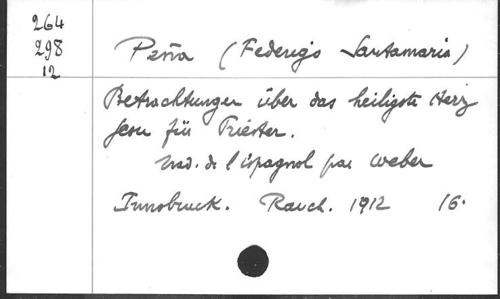 264
298
12
Peña (Federigo Santamaria)
Betrachtungen über das heiligste Herz
Jesu für Priester.
Trad. de l'espagnol par Weber
Innsbruck. Rauch. 1912 16.